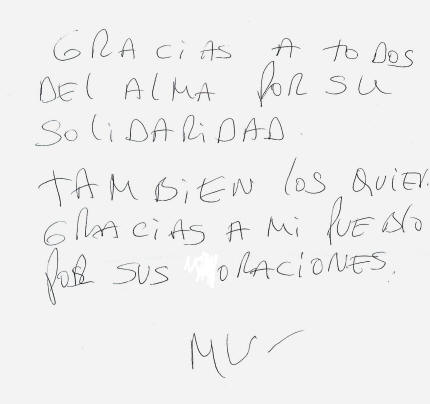 GRACIAS A TODOS
DEL ALMA POR SU
SOLIDARIDAD.
TAMBIEN LOS QUIER
GRACIAS A MI PUEBLO
POR SUS ORACIONES.
MV